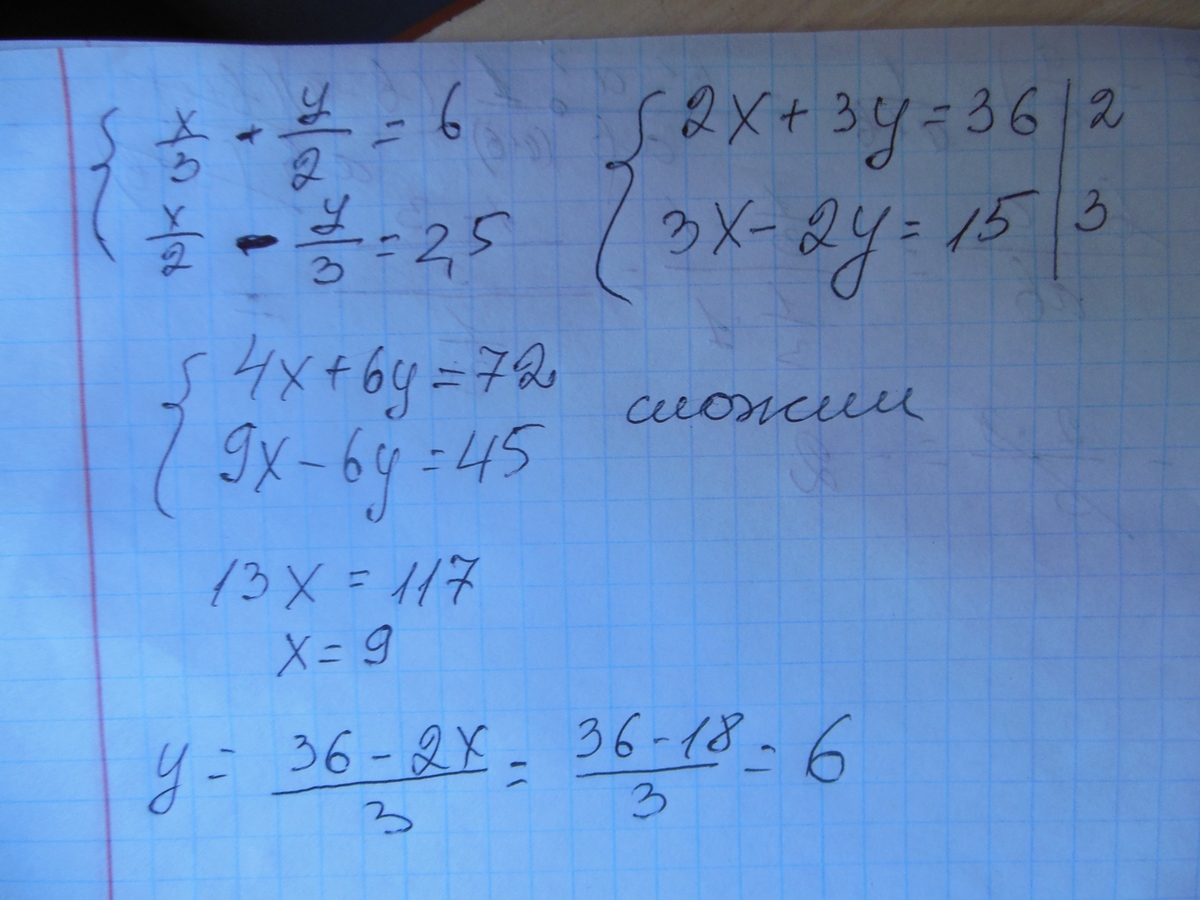 x/3 + y/2 = 6
x/2 - y/3 = 2,5
2x + 3y = 36 | 2
3x - 2y = 15 | 3
4x + 6y = 72
9x - 6y = 45
сложим
13x = 117
x = 9
y = (36 - 2x)/3 = (36 - 18)/3 = 6